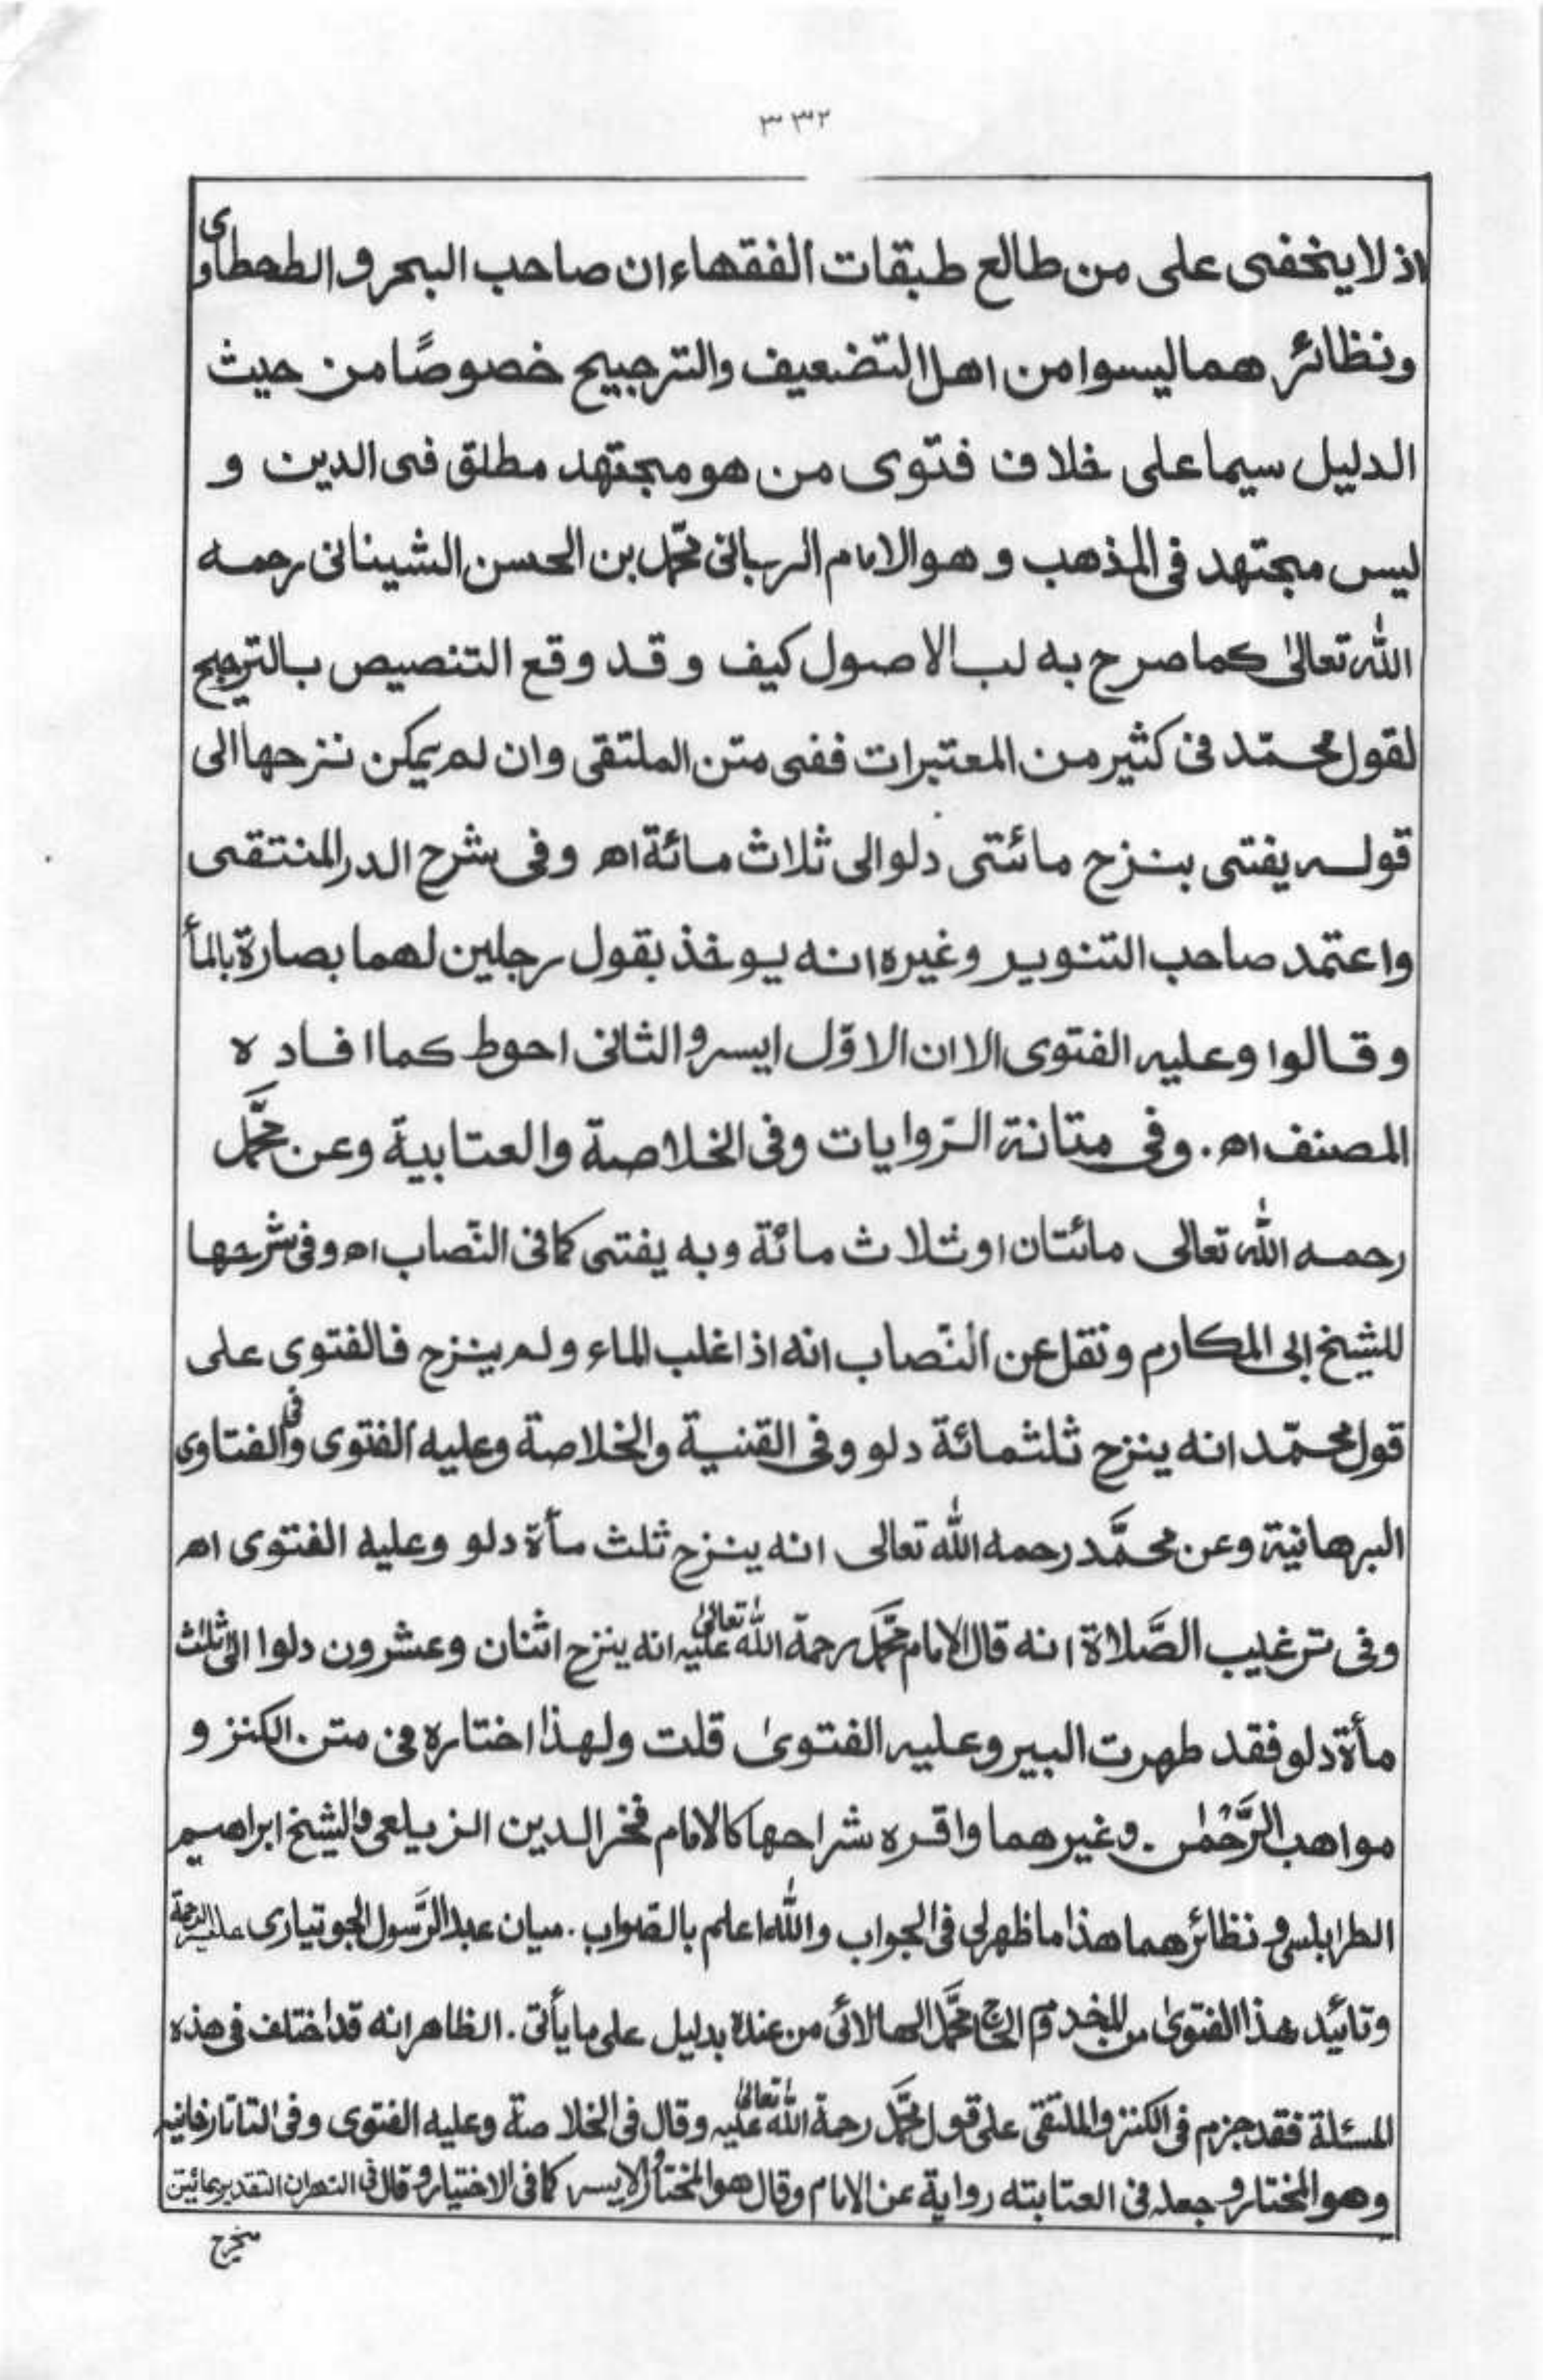 ٣٣٢
اذ لا يخفى على من طالع طبقات الفقهاء ان صاحب البحر و الطحطاوى
ونظائر هما ليسوا من اهل التضعيف والترجييح خصوصًا من حيث
الدليل سيما على خلاف فتوى من هو مجتهد مطلق فى الدين و
ليس مجتهد فى المذهب و هو الامام الربانى محمّد بن الحسن الشينانى رحمه
الله تعالىٰ كما صرح به لب الاصول كيف و قد وقع التنصيص بالترجيح
لقول محمّد فى كثير من المعتبرات ففى متن الملتقى وان لم يمكن نزحها الى
قوله يفتى بنزح مائتى دلو الى ثلاث مائة اھ وفى شرح الدر المنتقى
واعتمد صاحب التنوير وغيره انه يوخذ بقول رجلين لهما بصارة بالمأ
وقالوا وعليه الفتوى الا ان الاوّل ايسر و الثانى احوط كما افاده
المصنف اھ . وفى متانة الرّوايات وفى الخلاصة والعتابية وعن محمَّد
رحمه الله تعالى مائتان او ثلاث مائة وبه يفتى كما فى النّصاب اھ وفى شرحها
للشيخ ابى المكارم ونقل عن النّصاب انه اذا غلب الماء ولم ينزح فالفتوى على
قول محمّد انه ينزح ثلثمائة دلو وفى القنية والخلاصة وعليه الفتوى وفى الفتاوى
البرهانية وعن محمَّد رحمه الله تعالى انه ينزح ثلث مأة دلو وعليه الفتوى اھ
وفى ترغيب الصَّلاة انه قال الامام محمَّد رحمة الله تعالىٰ عليه انه ينزح اثنان وعشرون دلوا الى ثلث
مأة دلو فقد طهرت البير وعليه الفتوىٰ قلت ولهذا اختاره فى متن الكنز و
مواهب الرَّحمٰن . وغير هما واقره شراحها كالامام فخر الدين الزيلعى والشيخ ابراهيم
الطرابلسى و نظائر هما هذا ما ظهر لى فى الجواب والله اعلم بالصّواب . ميان عبد الرَّسول الجوتيارى عليه الرحمة
وتائيد هذا الفتوىٰ من المخدوم الحاج محمَّد الهالائى من عنده بدليل على ما يأتى . الظاهر انه قد اختلف فى هذه
المسئلة فقد جزم فى الكنز والملتقى على قول محمَّد رحمة الله تعالىٰ عليه وقال فى الخلاصة وعليه الفتوى وفى التاتارخانيه
وهو المختار و جعله فى العتابته رواية عن الامام وقال هو المختار والايسر كما فى الاختيار و قال فى النهر ان التقدير بمائيتن
منجرح